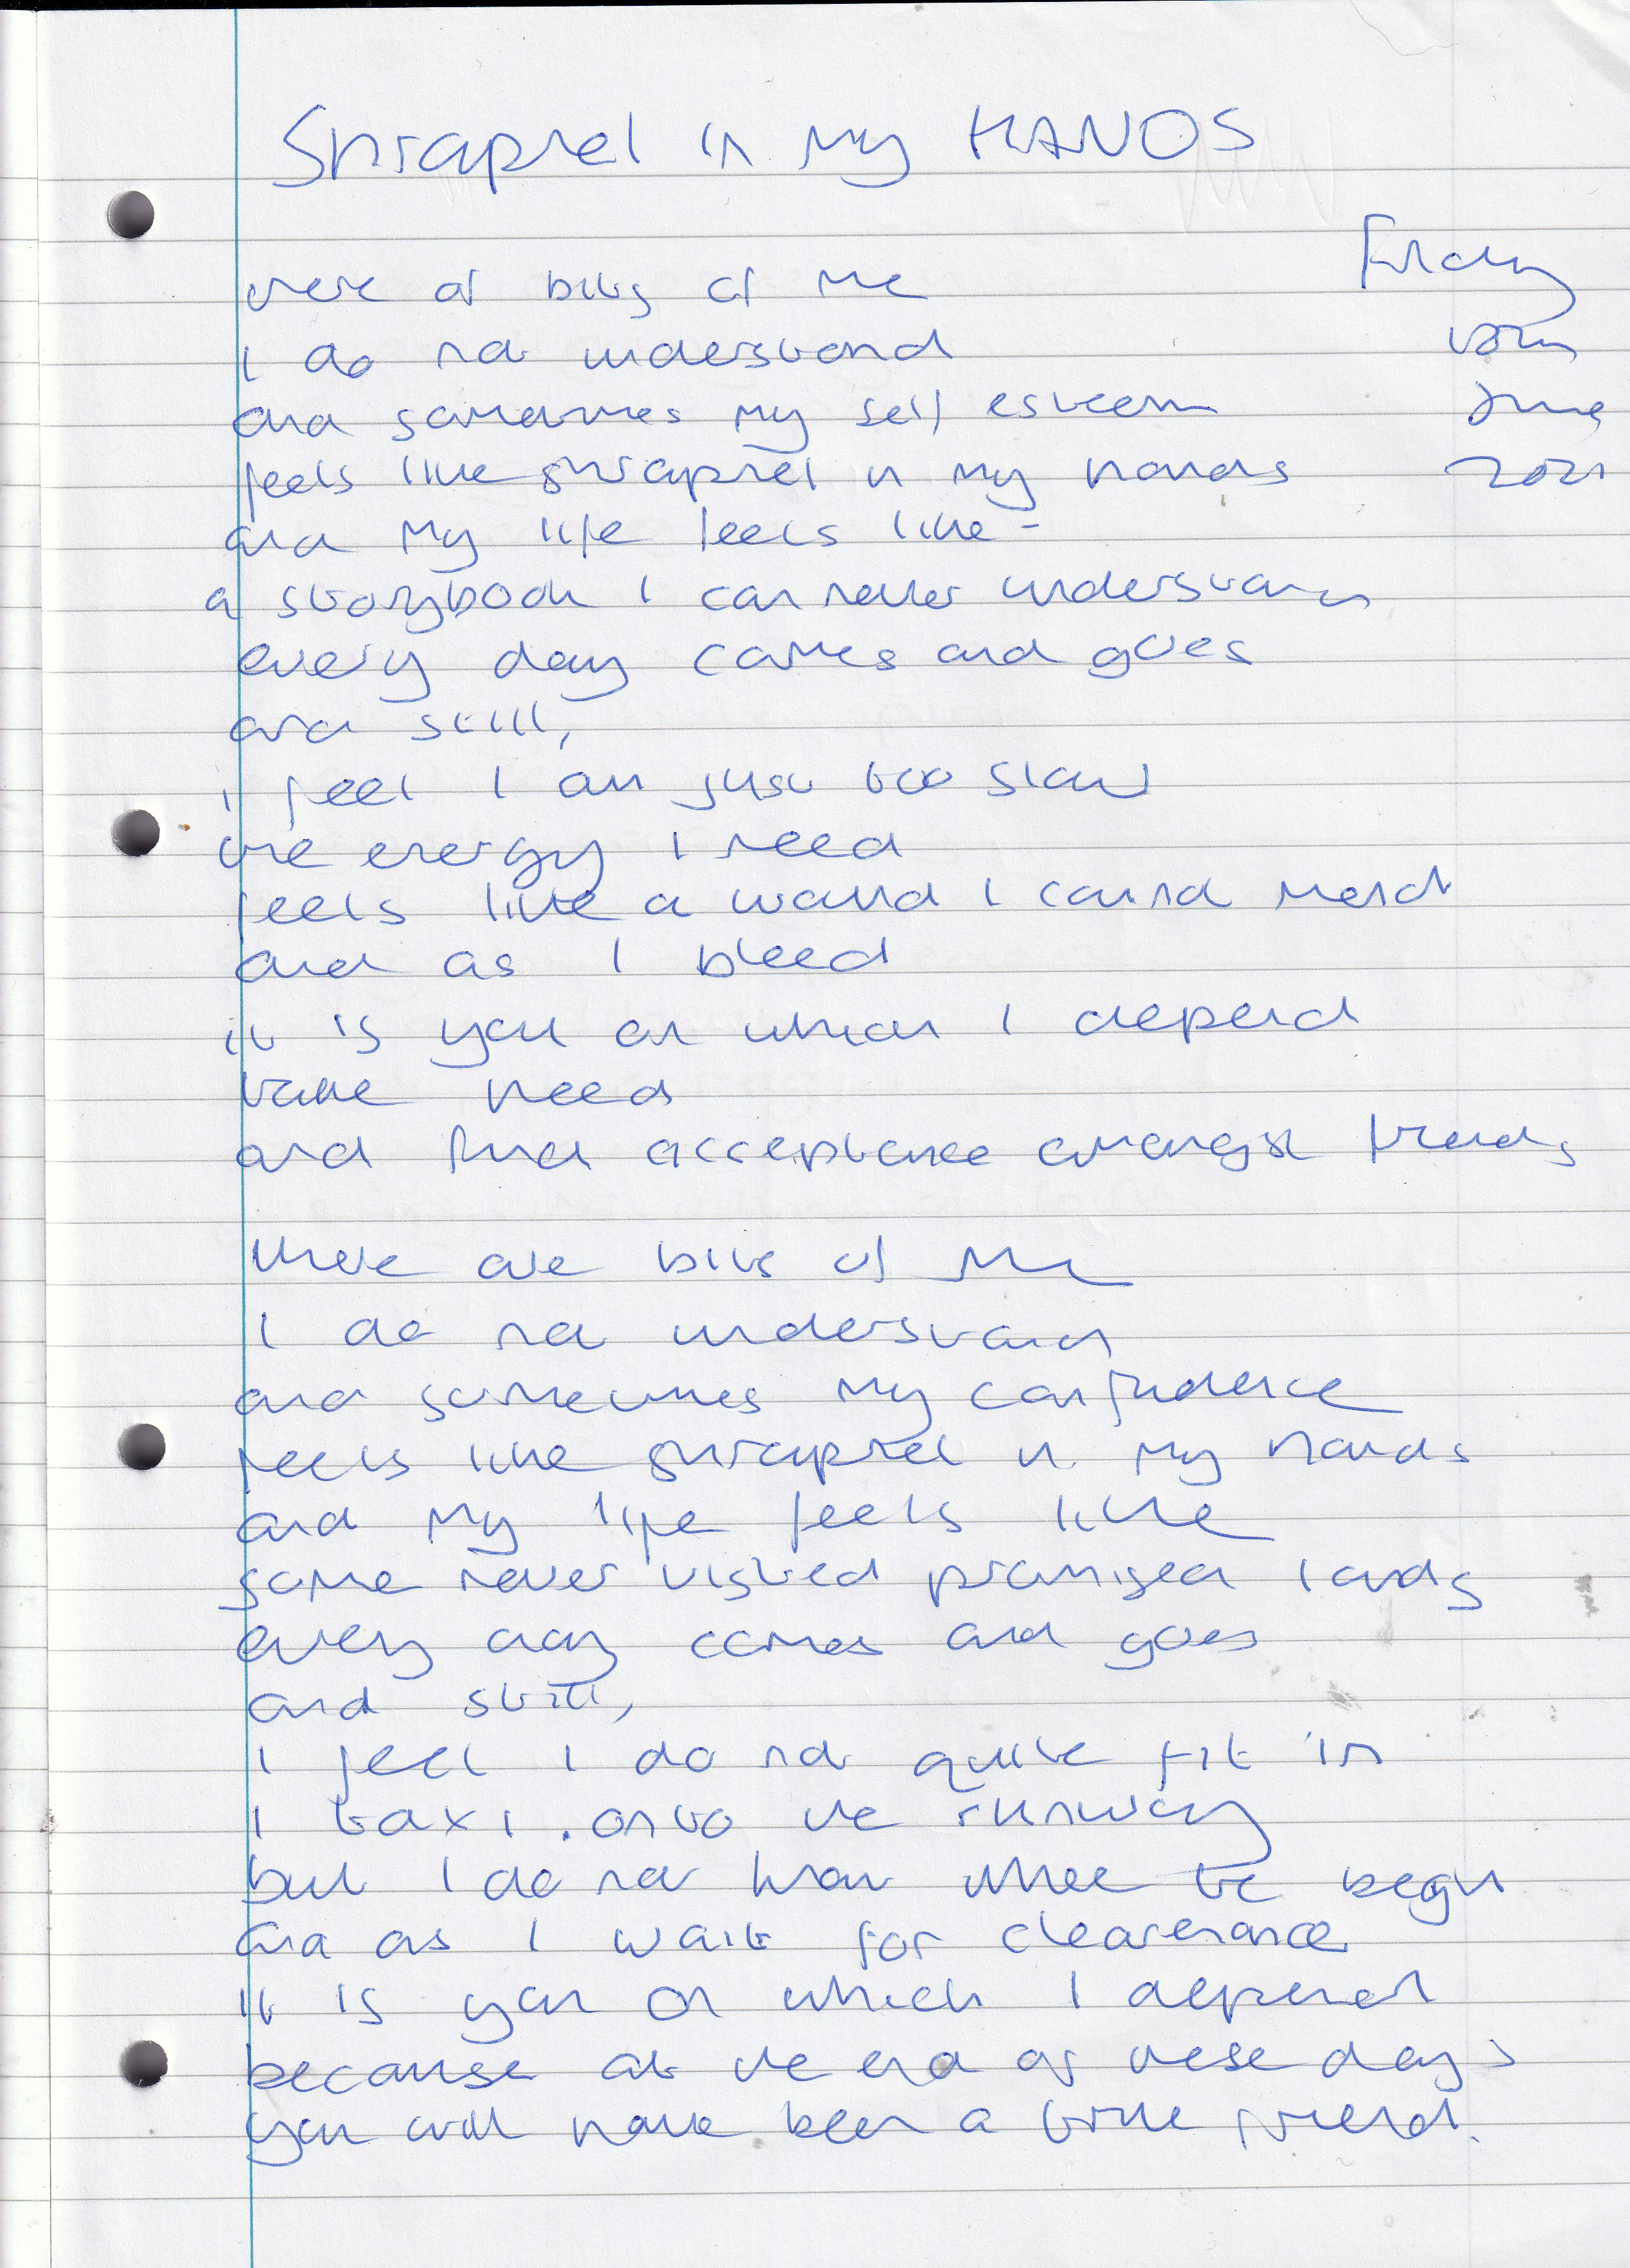 Shrapnel in my HANDS
Friday
18th
June
2021
there are bits of me
I do not understand
and sometimes my self esteem
feels like shrapnel in my hands
and my life feels like -
a storybook I can never understand
every day comes and goes
and still,
I feel I am just too slow
the energy I need
feels like a wound I cannot mend
and as I bleed
it is you on which I depend
take heed
and find acceptance amongst friends
there are bits of me
I do not understand
and sometimes my confidence
feels like shrapnel in my hands
and my life feels like
some never visited promised lands
every day comes and goes
and still,
I feel I do not quite fit in
I taxi onto the runway
but I do not know where to begin
and as I wait for clearance
it is you on which I depend
because at the end of these days
you will have been a true friend.